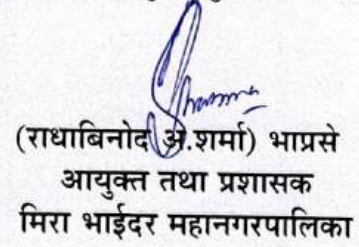 (राधाबिनोद अ.शर्मा) भाप्रसे
आयुक्त तथा प्रशासक
मिरा भाईदर महानगरपालिका